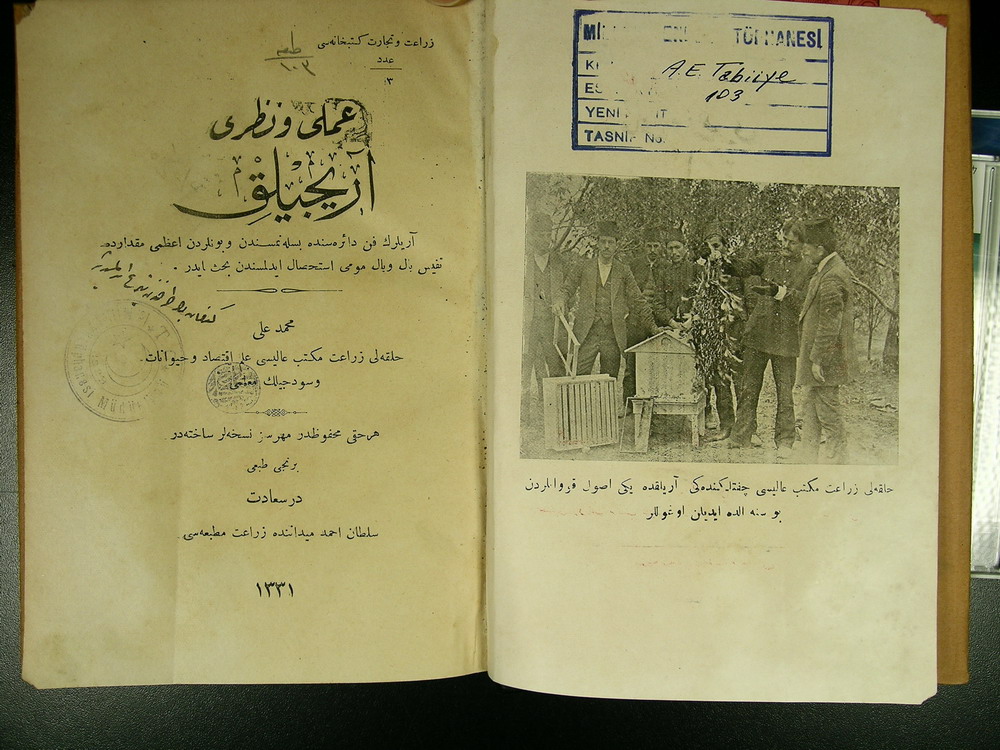 زراعت و تجارت كتبخانه‌سی
عدد
٣
طبيعيه
١٠٣
عملی و نظری
آریجیلق
آریلرك فن دائره‌سنده بسله‌نمسندن و بونلردن اعظمی مقدارده
نفیس بال وبال مومی استحصال ایدلمسندن بحث ایدر .
محمد علی
حلقه‌لی زراعت مكتب عالیسی علم اقتصاد و حیوانات
وسودجیلك معلمی
هر حقی محفوظدر مهرسز نسخه‌لر ساخته‌در
برنجی طبعی
درسعادت
سلطان احمد میداننده زراعت مطبعه‌سی
١٣٣١
TÜPHANESİ
A.E. Tabiiye
103
YENİ
TASNİF No.
حلقه‌لی زراعت مكتب عالیسی چفتلكنده‌كی آریلقده یكی اصول قووانلردن
بو سنه الده ایدیلن اوغوللر